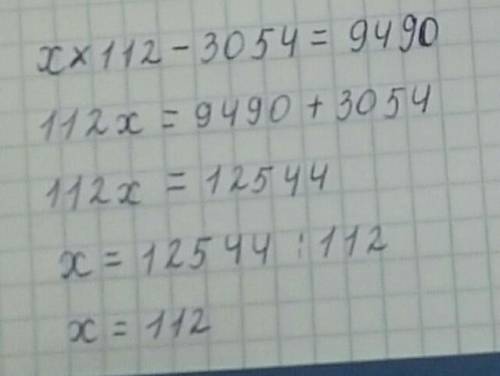 x×112-3054=9490
112x=9490+3054
112x=12544
x=12544:112
x=112